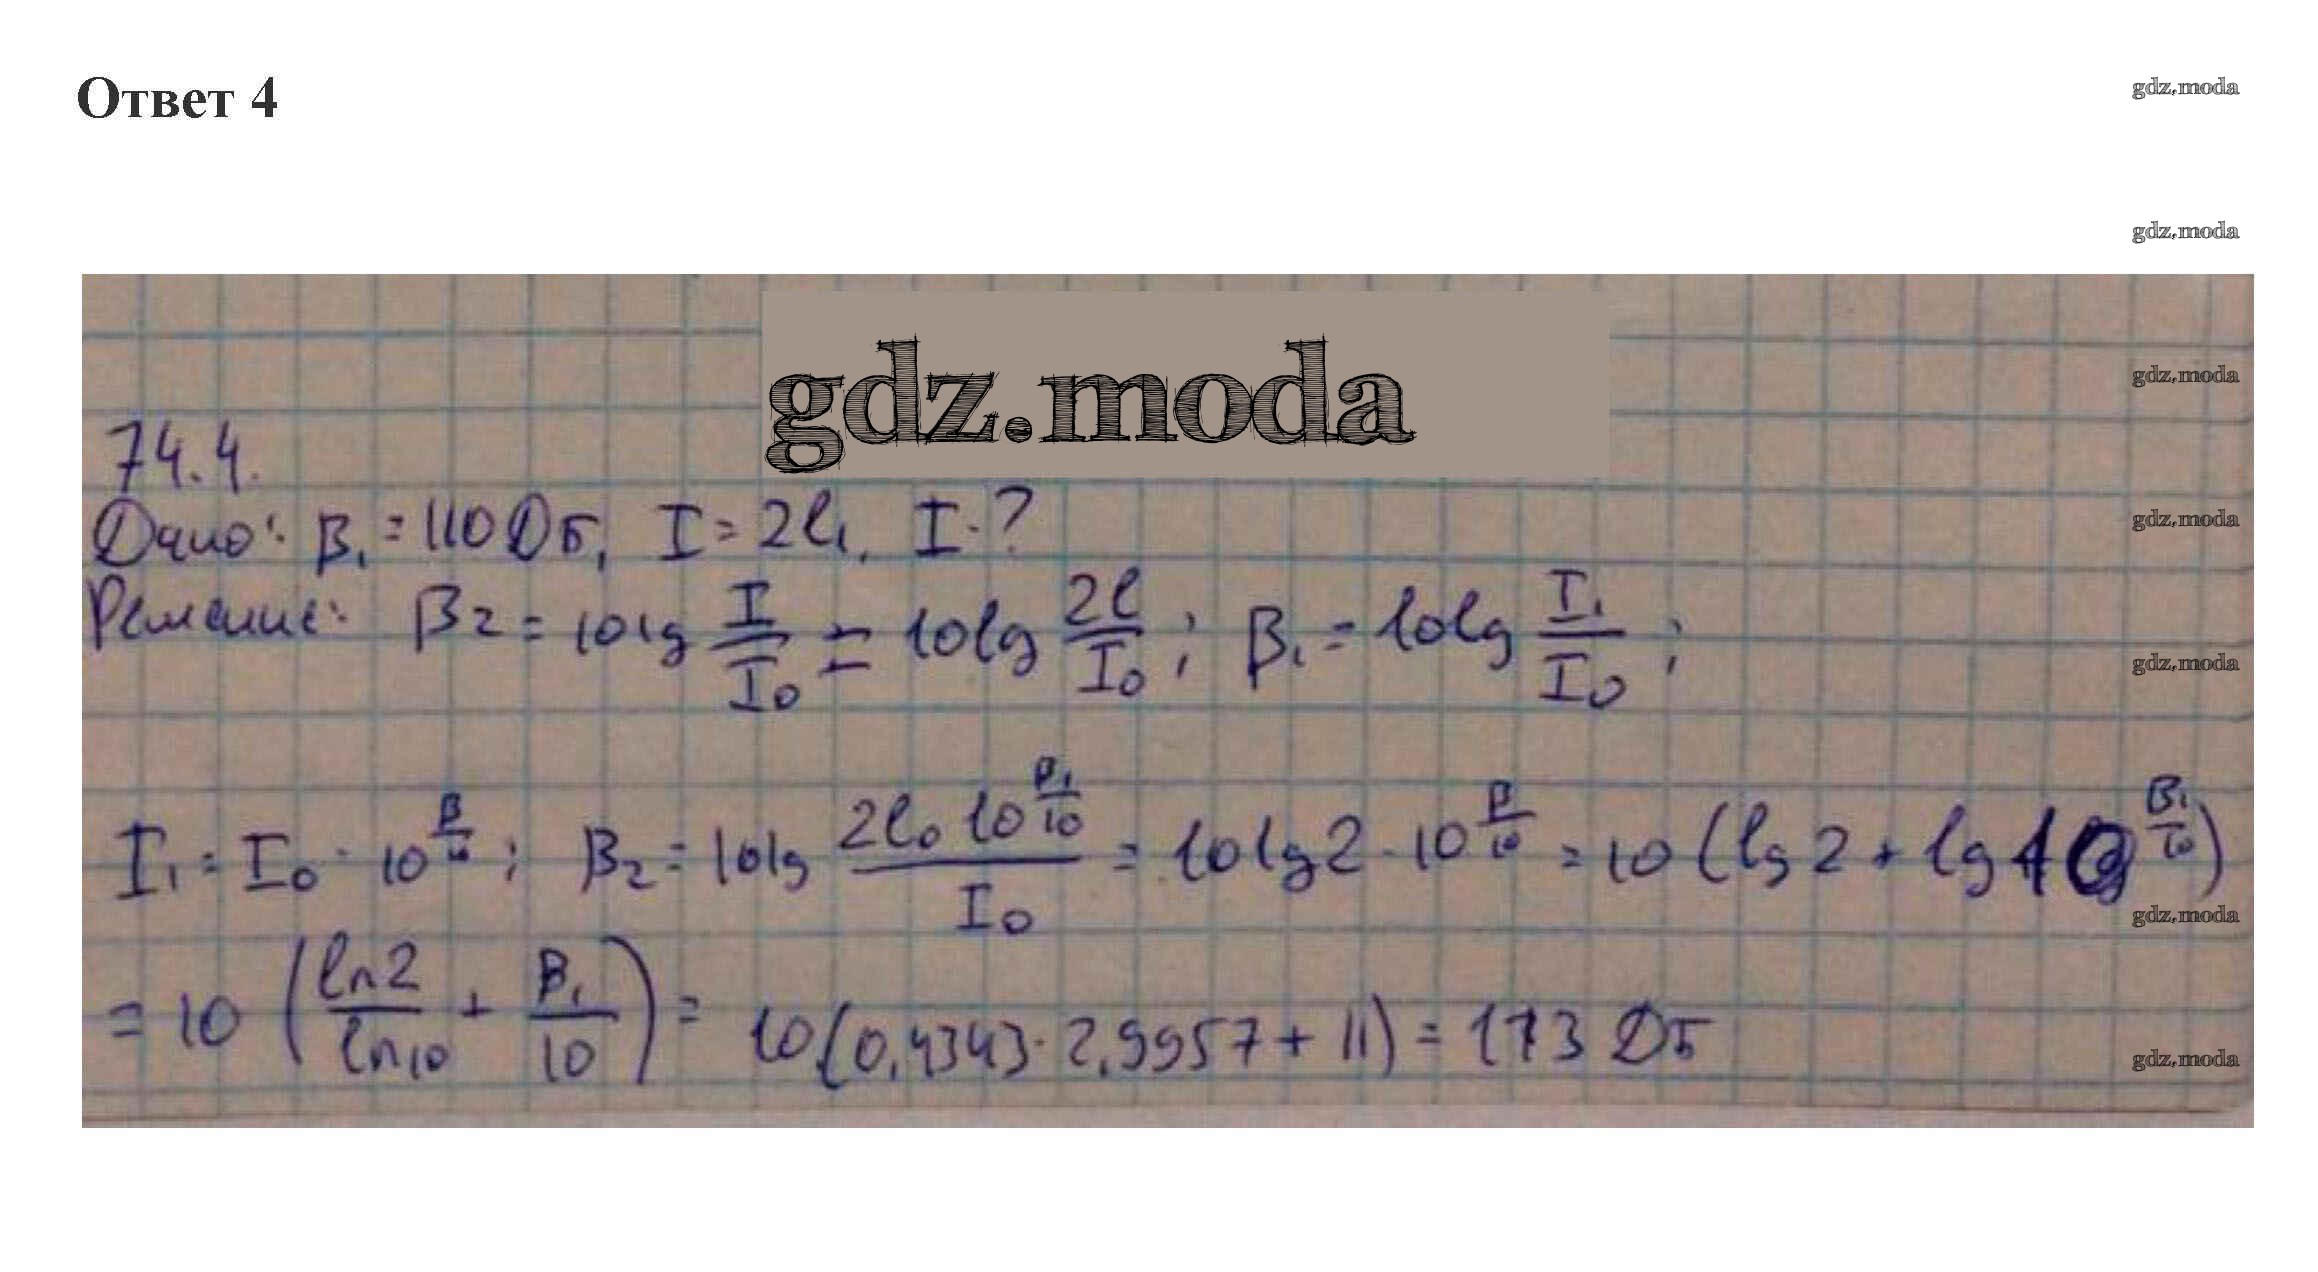 Ответ 4
gdz.moda
gdz.moda
gdz.moda
gdz.moda
74.4.
Дано: β₁ = 110 Дб, I = 2l₁, I-?
gdz.moda
Решение: β2 = 10lg I/I₀ = 10lg 2l/I₀ ; β₁ = 10lg I₁/I₀ ;
gdz.moda
I₁ = I₀ · 10^(β/10) ; β₂ = 10lg (2l₀ 10^(β₁/10))/I₀ = 10lg2 · 10^(β/10) = 10 (lg 2 + lg 10^(β₁/10))
gdz.moda
= 10 (ln2/ln10 + β₁/10) = 10(0,4343 · 2,9957 + 11) = 173 Дб
gdz.moda